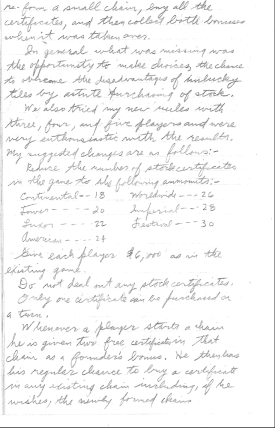 re-form a small chain, buy all the
certificates, and then collect both bonuses
when it was taken over.
In general what was missing was
the opportunity to make choices, the chance
to overcome the disadvantages of unlucky
tiles by astute purchasing of stock.
We also tried my new rules with
three, four, and five players and were
very enthusiastic with the results.
My suggested changes are as follows:-
Reduce the number of stock certificates
in the game to the following amounts:-
Continental -- 18 Worldwide --- 26
Tower ---- 20 Imperial --- 28
Luxor ---- 22 Festival --- 30
American ---- 24
Give each player $6,000 as in the
existing game.
Do not deal out any stock certificates.
Only one certificate can be purchased in
a turn.
Whenever a player starts a chain
he is given two free certificates in that
chain as a founder's bonus. He then has
his regular chance to buy a certificate
in any existing chain including, if he
wishes, the newly formed chain